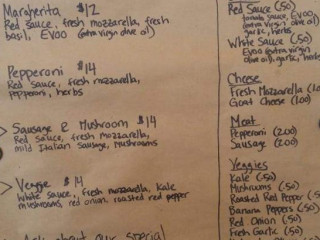 Margherita $12
Red sauce, fresh mozzarella, fresh
basil, EVOO (extra virgin olive oil)
Pepperoni $14
Red sauce, fresh mozzarella,
pepperoni, herbs
> Sausage & Mushroom $14
Red sauce, fresh mozzarella,
mild Italian sausage, mushrooms
> Veggie $14
White sauce, fresh mozzarella, kale
mushrooms, red onion, roasted red pepper
about our special
Red Sauce (.50)
tomato sauce, EVOO
(extra virgin olive oil)
garlic, herbs
White Sauce (.50)
EVOO (extra virgin
olive oil), garlic, herbs
Cheese
Fresh Mozzarella (1.0
Goat Cheese (1.00)
Meat
Pepperoni (2.00)
Sausage (2.00)
Veggies
Kale (.50)
Mushrooms (.50)
Roasted Red Pepper (
Banana Peppers (.50)
Red Onion (.50)
Fresh Garlic (.50)